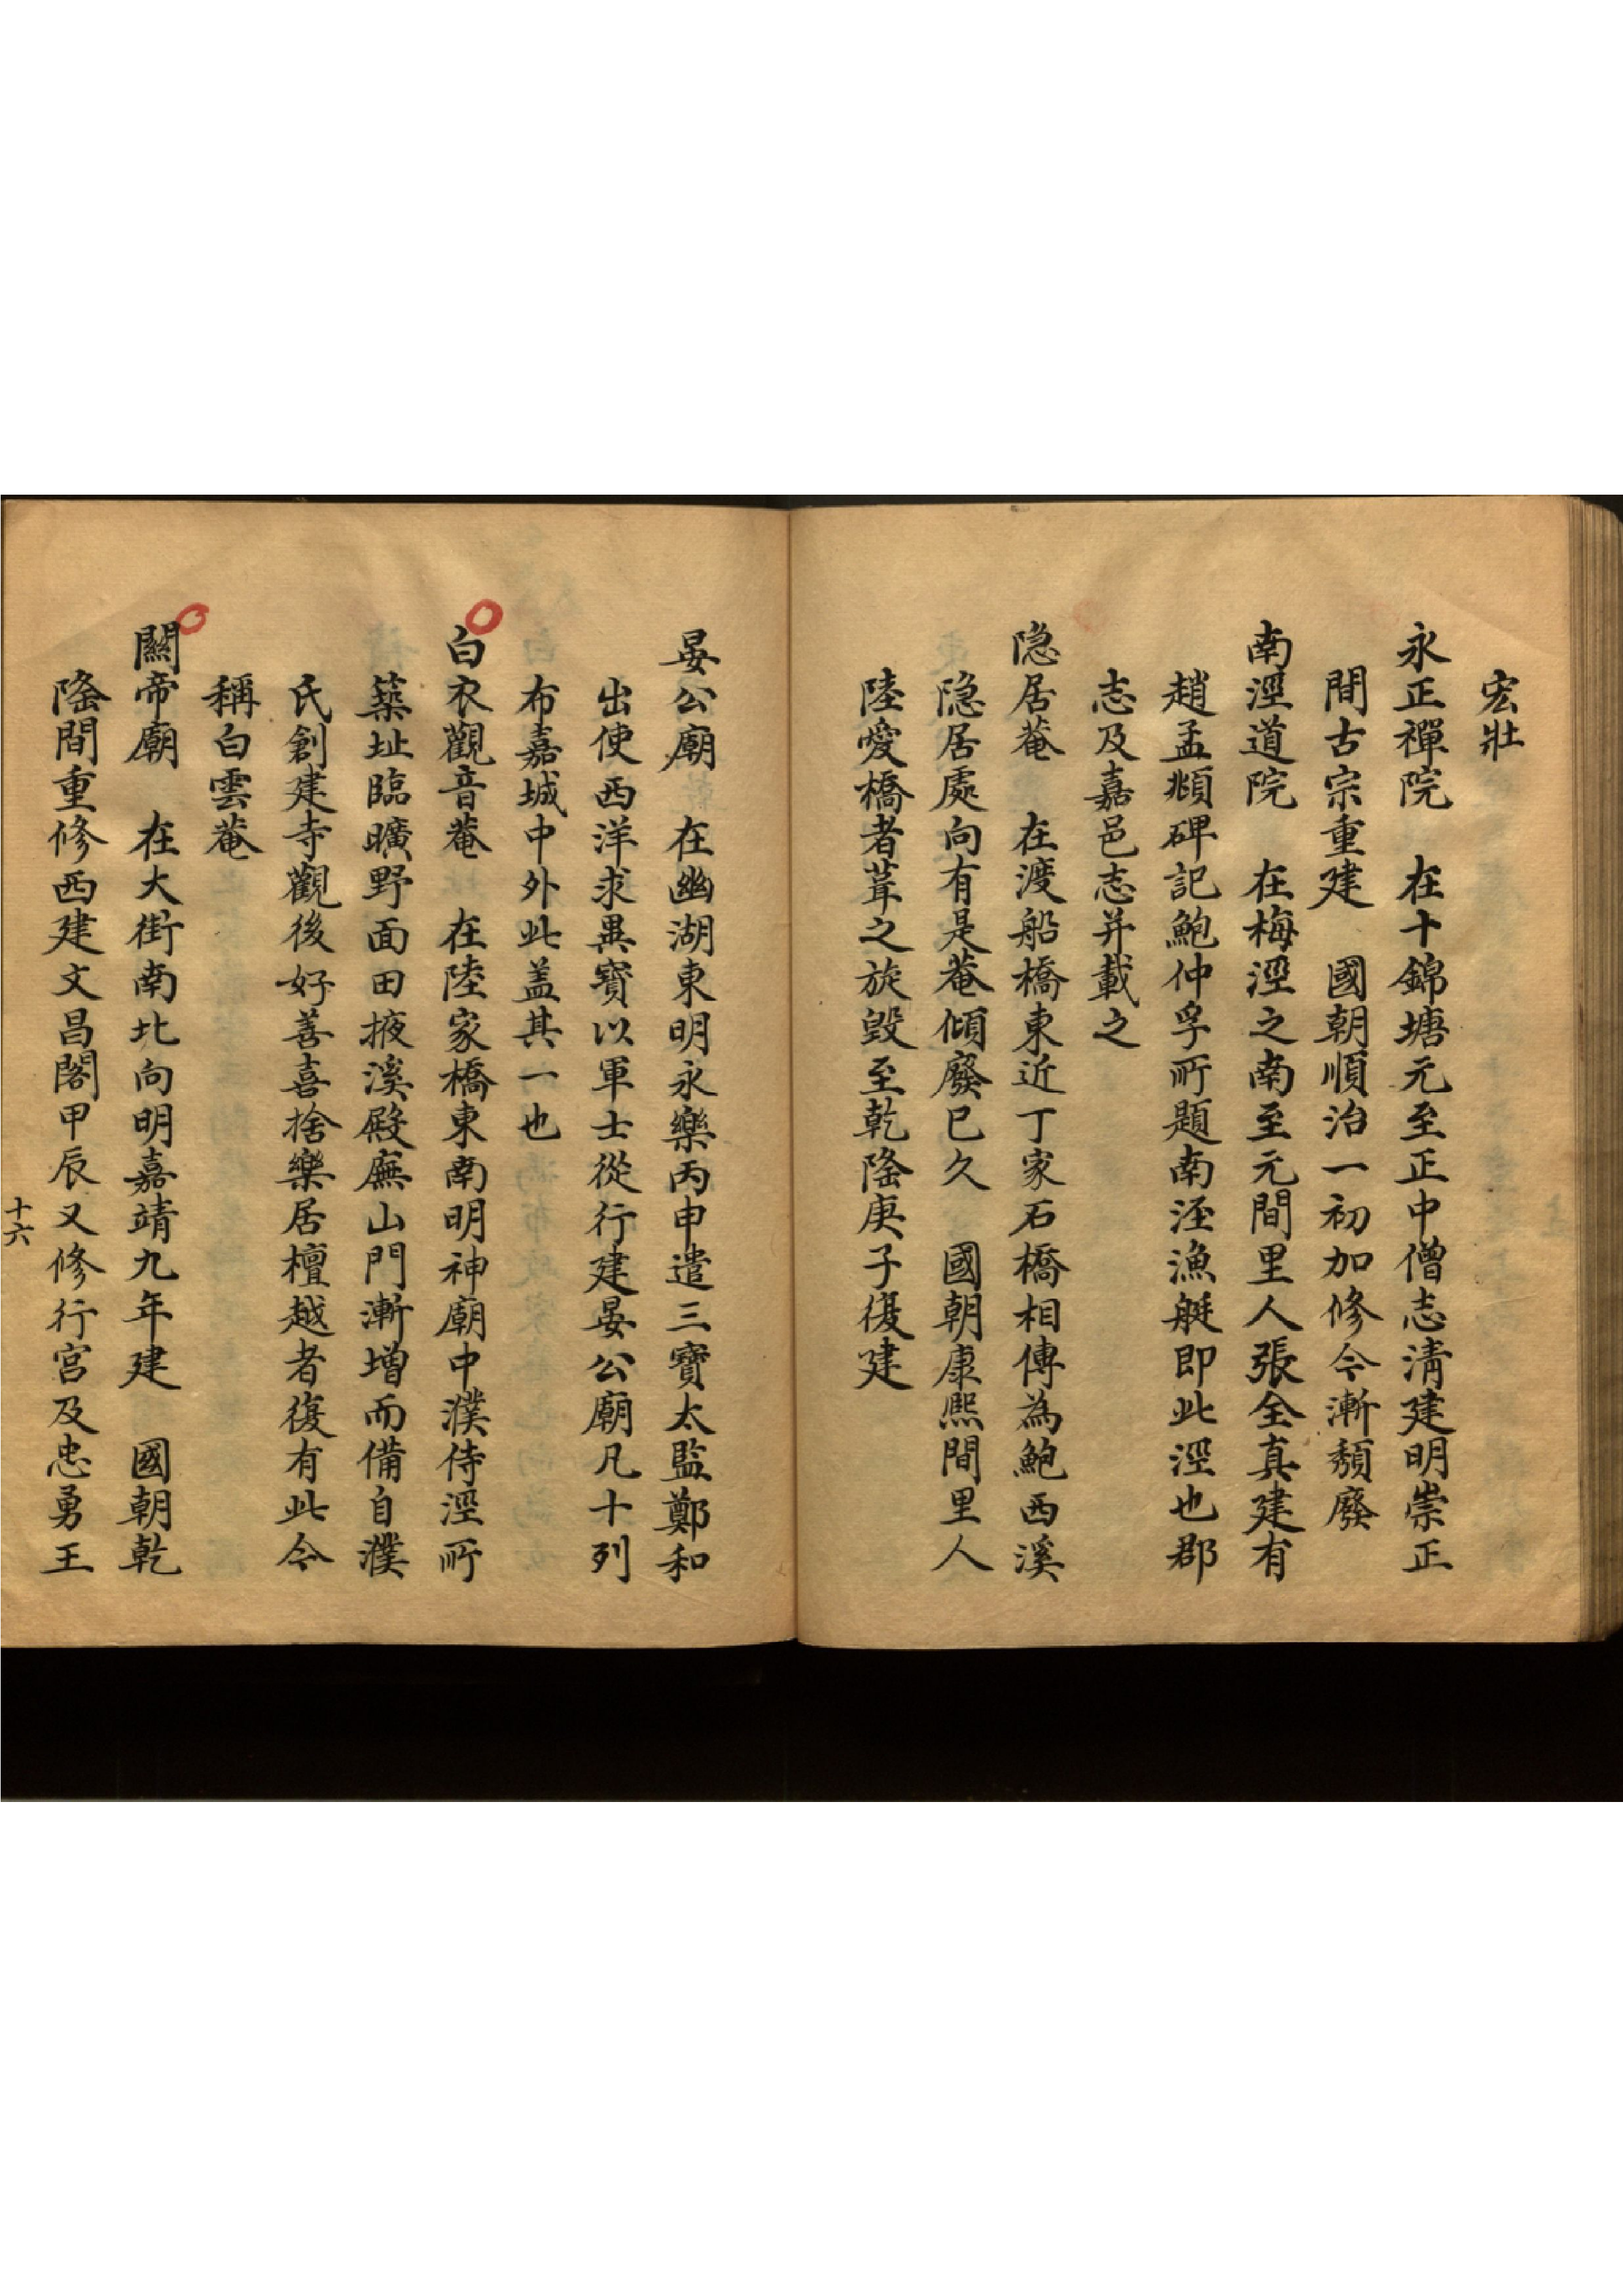 宏壯
永正禪院　在十錦塘元至正中僧志淸建明崇正
間古宗重建　國朝順治一初加修今漸頽廢
南涇道院　在梅涇之南至元間里人張全真建有
趙孟頫碑記鮑仲孚所題南涇漁艇即此涇也郡
志及嘉邑志并載之
隐居菴　在渡船橋東近丁家石橋相傳為鮑西溪
隐居處向有是菴傾廢已久　國朝康熙間里人
陸愛橋者葺之旋毀至乾隆庚子復建
晏公廟　在幽湖東明永樂丙申遣三寶太監鄭和
出使西洋求異寶以軍士從行建晏公廟凡十列
布嘉城中外此盖其一也
白衣觀音菴　在陸家橋東南明神廟中濮侍涇所
築址臨曠野面田掖溪殿廡山門漸增而備自濮
氏創建寺觀後好善喜捨樂居檀越者復有此今
稱白雲菴
關帝廟　在大街南北向明嘉靖九年建　國朝乾
隆間重修西建文昌閣甲辰又修行宮及忠勇王
十六